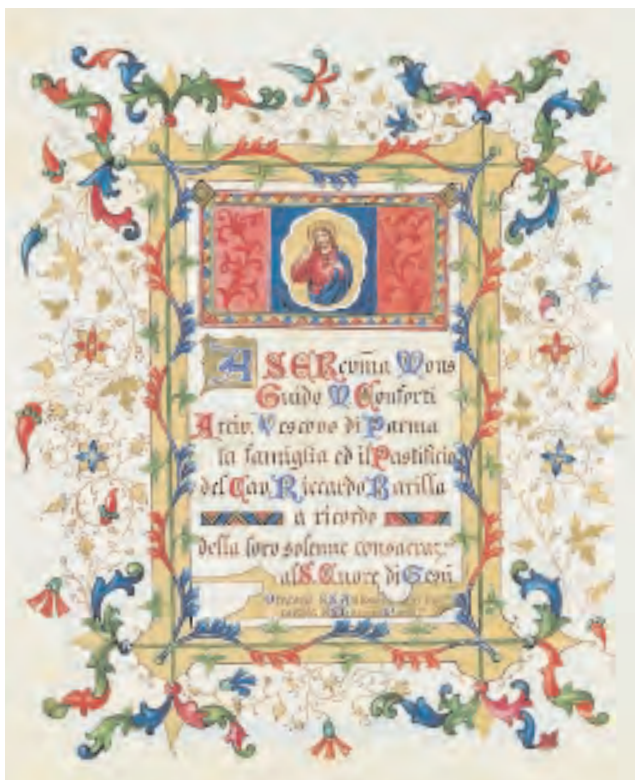 A S E R evm̃a Mons
Guido M. Conforti
Arciv. Vescovo di Parma
la famiglia ed il Pastificio
del Cav. Riccardo Barilla
a ricordo
della loro solenne consacraz.
al S. Cuore di Gesù